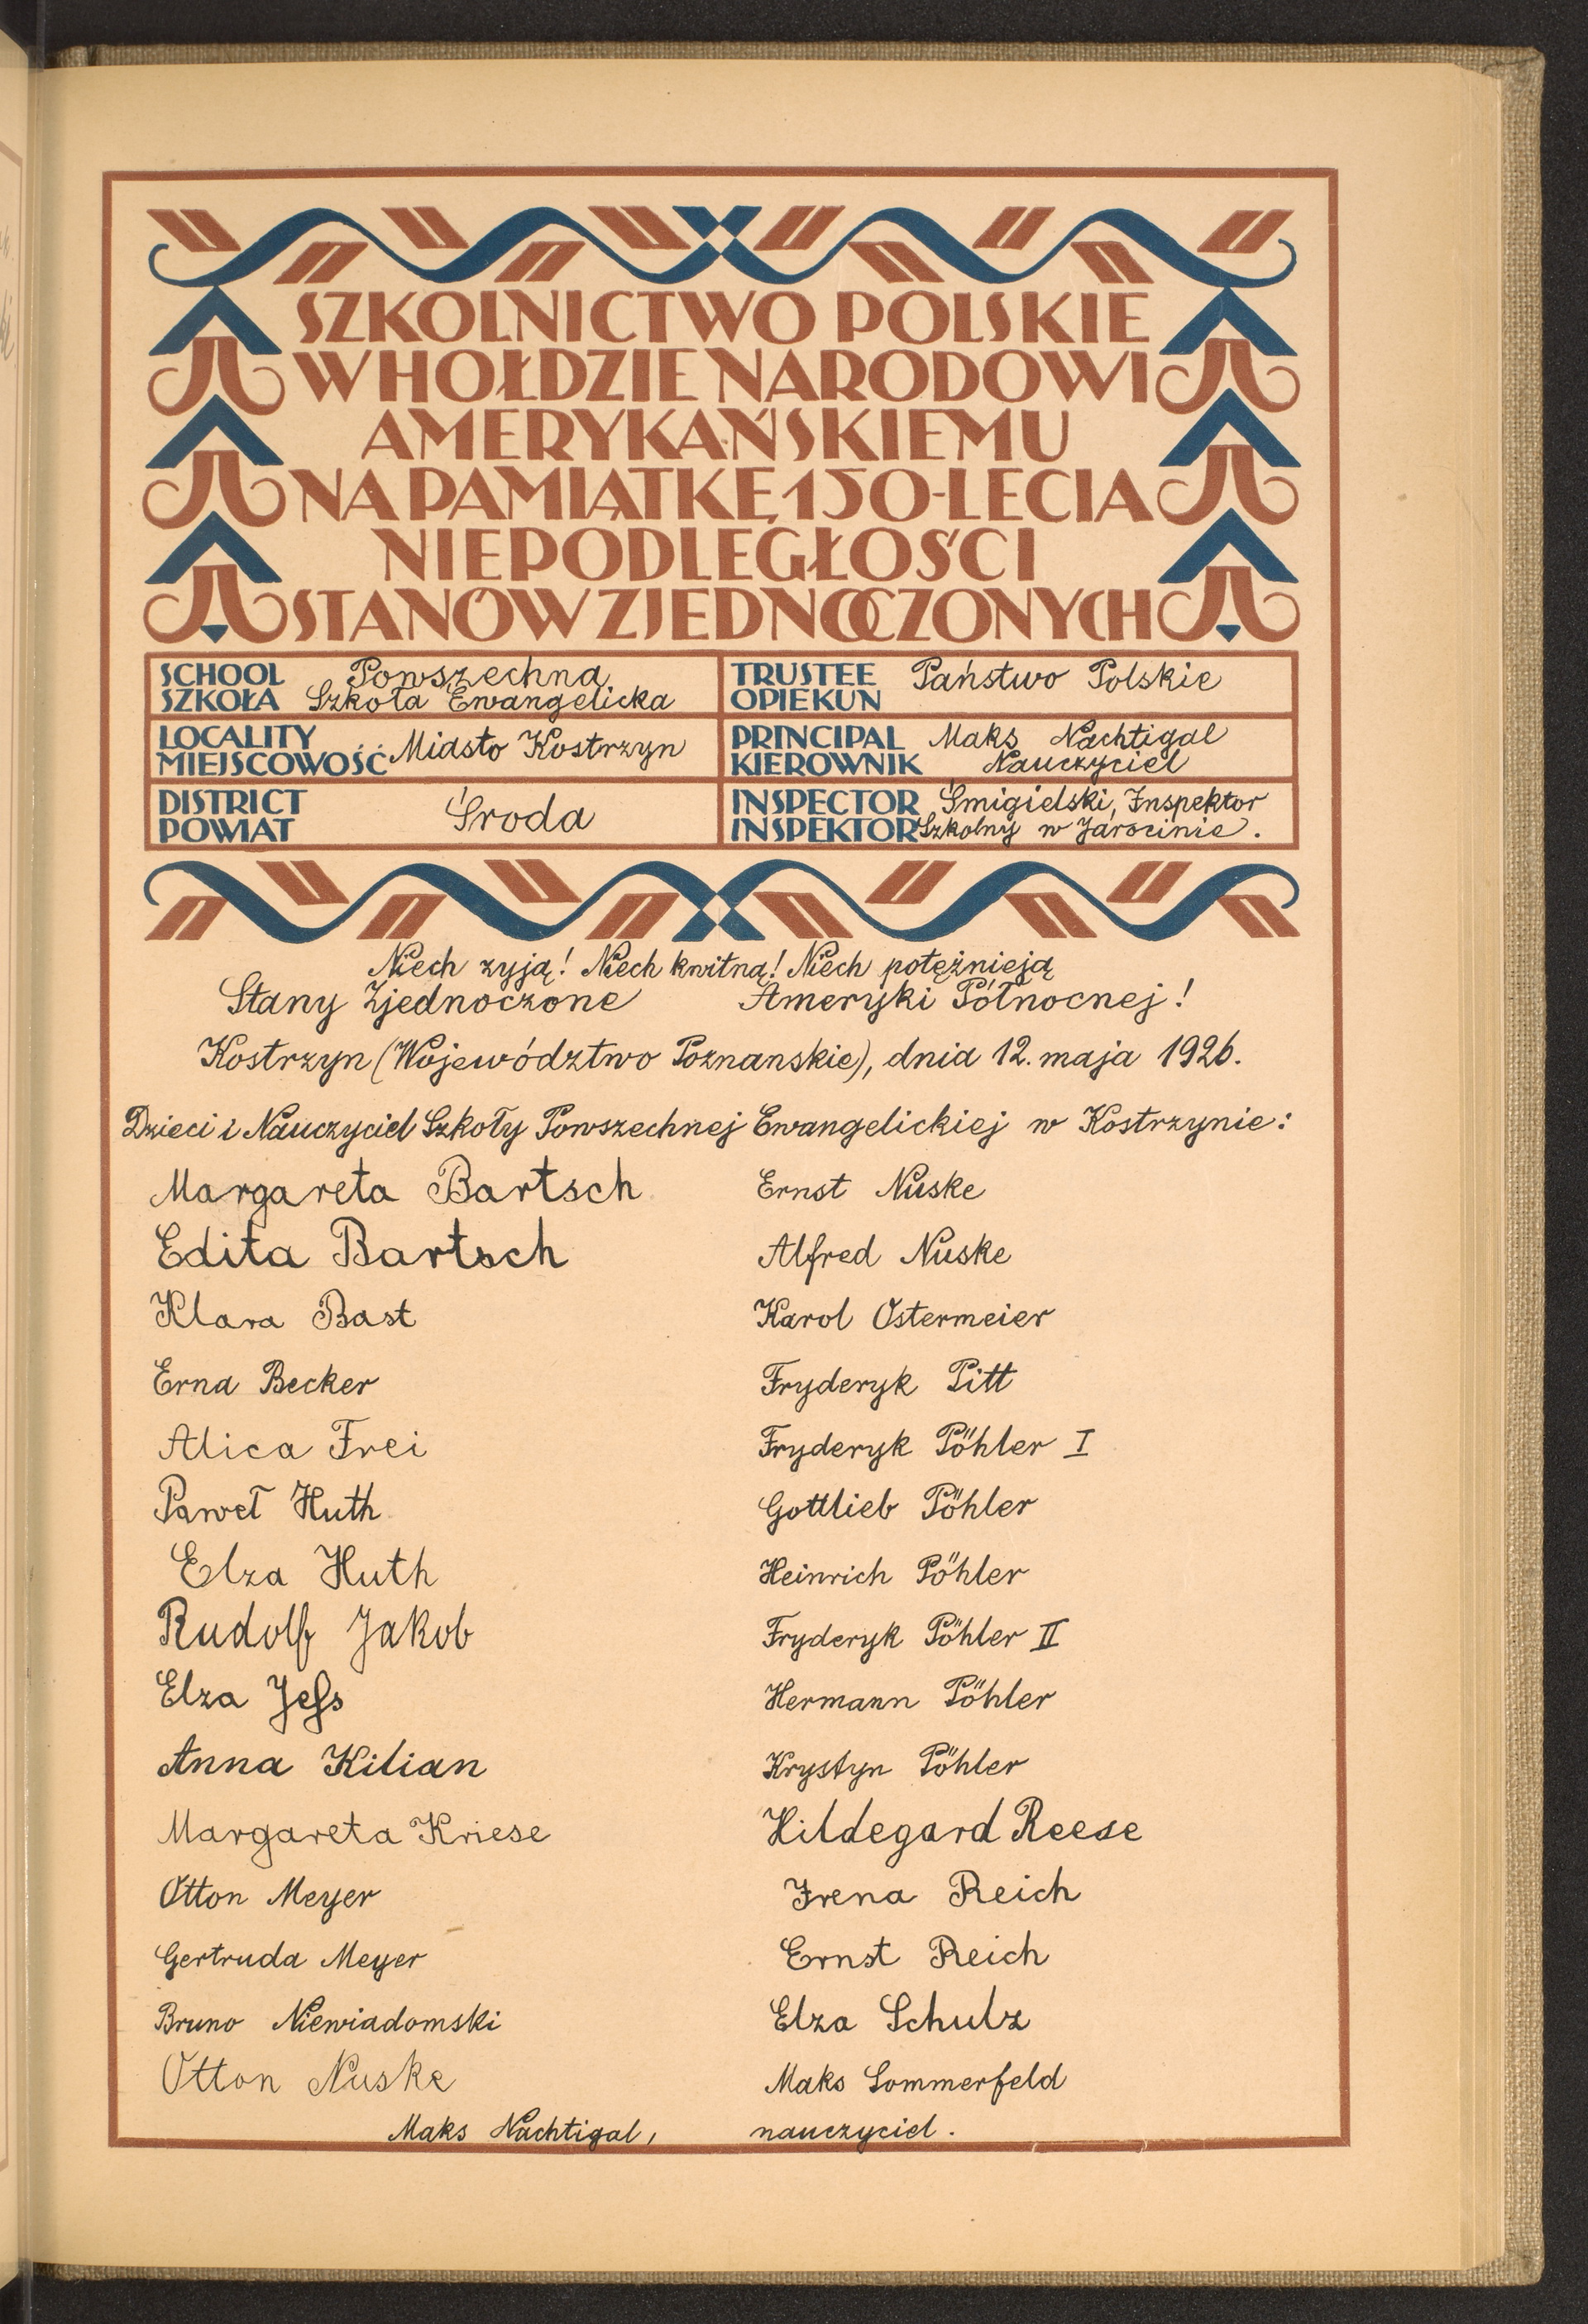 SZKOLNICTWO POLSKIE
W HOŁDZIE NARODOWI
AMERYKAŃSKIEMU
NA PAMIĄTKĘ 150-LECIA
NIEPODLEGŁOŚCI
STANÓW ZJEDNOCZONYCH
SCHOOL
SZKOŁA
Powszechna
Szkoła Ewangelicka
TRUSTEE
OPIEKUN
Państwo Polskie
LOCALITY
MIEJSCOWOŚĆ
Miasto Kostrzyn
PRINCIPAL
KIEROWNIK
Maks Nachtigal
Nauczyciel
DISTRICT
POWIAT
Środa
INSPECTOR
INSPEKTOR
Śmigielski, Inspektor
Szkolny w Jarocinie.
Niech zyją! Niech kwitną! Niech potężnieją
Stany Zjednoczone Ameryki Północnej!
Kostrzyn (Województwo Poznanskie), dnia 12. maja 1926.
Dzieci i Nauczyciel Szkoły Powszechnej Ewangelickiej w Kostrzynie:
Margareta Bartsch
Edita Bartsch
Klara Bast
Erna Becker
Alica Frei
Paweł Huth
Elza Huth
Rudolf Jakob
Elza Jeſs
Anna Kilian
Margareta Kriese
Otton Meyer
Gertruda Meyer
Bruno Niewiadomski
Otton Nuske
Ernst Nuske
Alfred Nuske
Karol Ostermeier
Fryderyk Pitt
Fryderyk Pöhler I
Gottlieb Pöhler
Heinrich Pöhler
Fryderyk Pöhler II
Hermann Pöhler
Krystyn Pöhler
Hildegard Reese
Irena Reich
Ernst Reich
Elza Schulz
Maks Sommerfeld
Maks Nachtigal, nauczyciel.